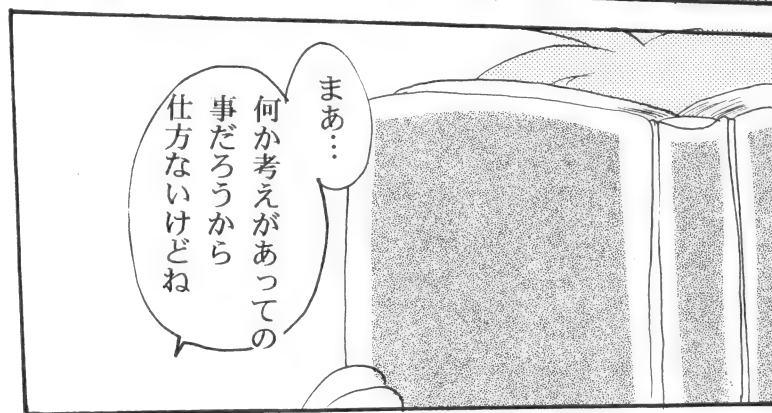 まあ…
何か考えがあっての
事だろうから
仕方ないけどね